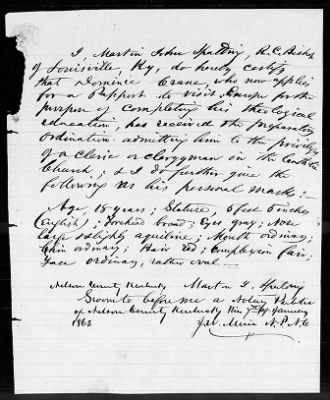 I, Martin John Spalding, R.C. Bishop
of Louisville, Ky, do hereby certify
that Dominic Crane, who now applies
for a Passport to visit Europe for the
purpose of completing his theological
education, has received the preparatory
ordination admitting him to the privileges
of a cleric or clergyman in the Catholic
Church; & I do further give the
following as his personal marks:—
Age, 18 years; Stature, 5 feet 8 inches
(English); Forehead broad; Eyes gray; Nose
large & slightly aquiline; Mouth ordinary;
Chin ordinary; Hair Red; Complexion fair;
Face ordinary, rather oval—
Nelson County Kentucky Martin J. Spalding
Sworn to before me a Notary Public
of Nelson County Kentucky this 7th of January
1863 Muir N.P.N.C